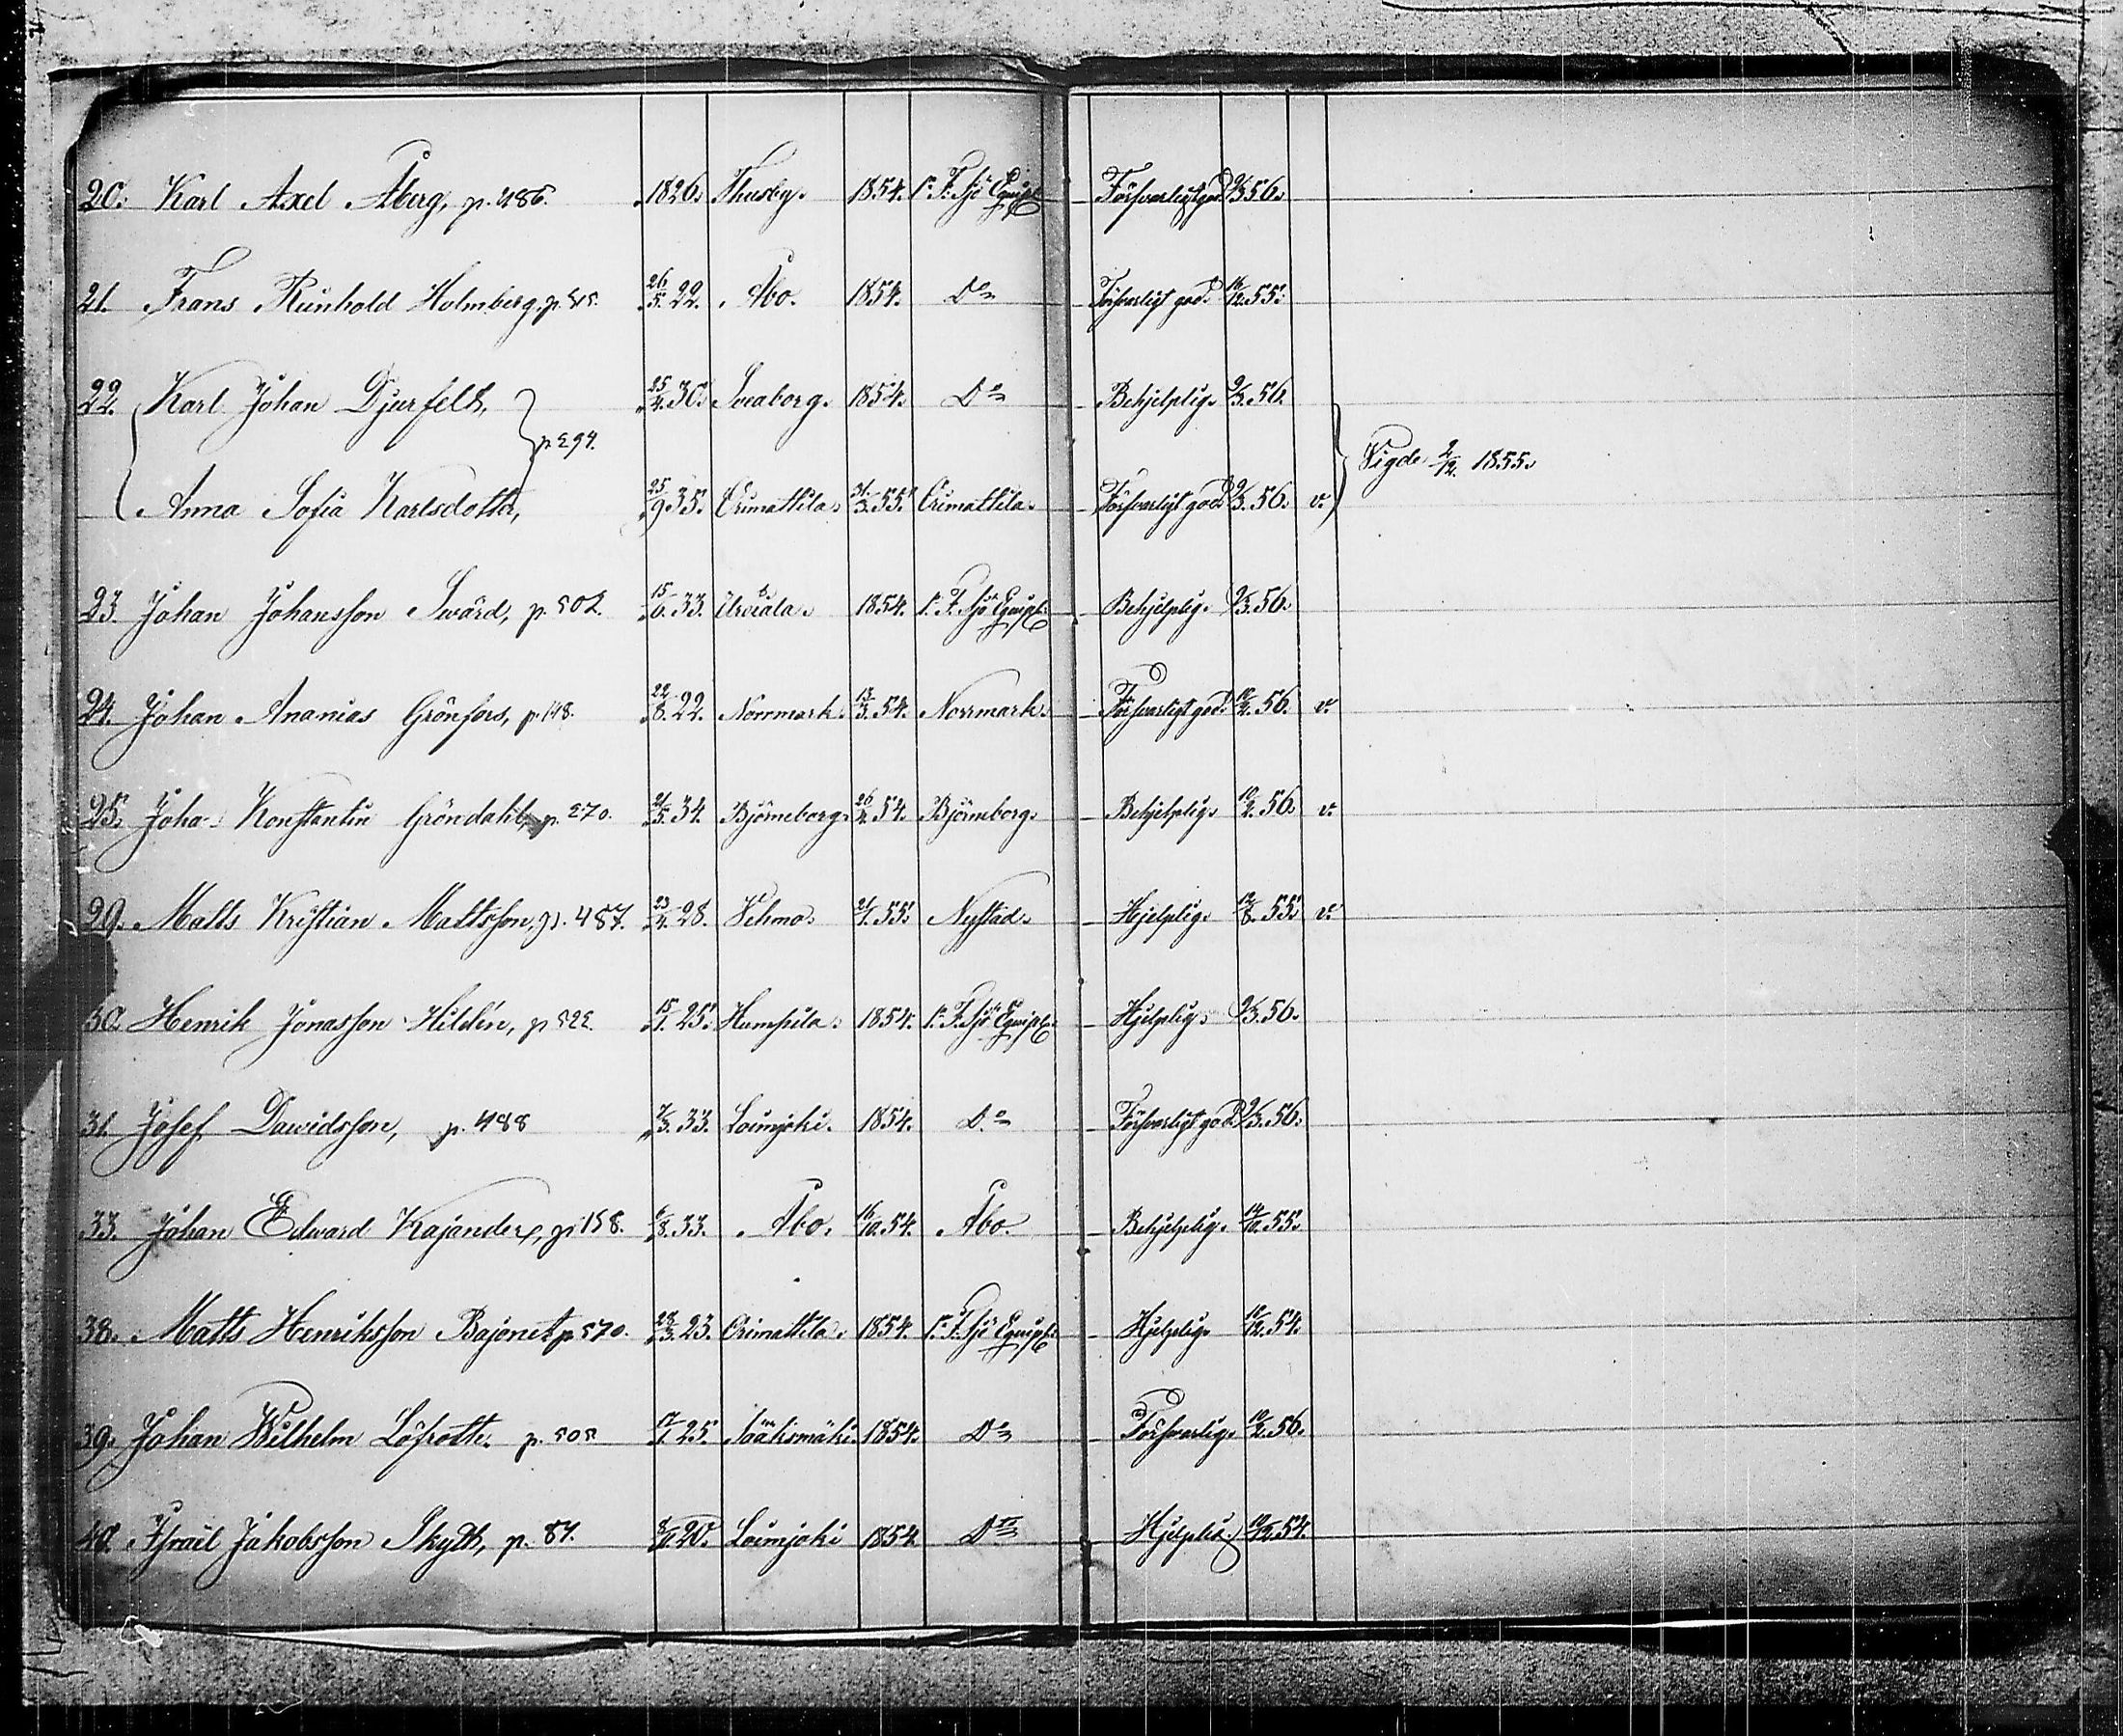 20. Karl Axel Åberg, p. 486. 1826. Thusby. 1854. 1. F. Sjö Equip. Försvarligt god 9/3 56.
21. Frans Reinhold Holmberg, p. 515. 26/5. 22. Åbo. 1854. Do Försvarligt god. 16/12. 55.
22. Karl Johan Djurfelt, 25/4. 30. Sveaborg. 1854. Do Behjelplig. 9/3. 56.
p 294. Vigde 2/12. 1855.
Anna Sofia Karlsdotter, 25/9. 35. Orimattila. 31/3. 55. Orimattila. Försvarligt god 9/3. 56. v.
23. Johan Johansson Swärd, p. 502. 15/6. 33. Urdiala. 1854. 1. F. Sjö Equip. Behjelplig. 9/3. 56.
24. Johan Ananias Grönfors, p. 148. 22/8. 22. Norrmark. 13/3. 54. Norrmark. Försvarligt god. 10/2. 56. v.
25. Joha- Konstantin Gröndahl, p. 270. 21/5. 34. Björneborg. 26/4. 54. Björneborg. Behjelplig. 10/2. 56. v.
29. Matts Kristian Mattsson, p. 487. 23/4. 28. Vehmo. 21/1. 55. Nystad. Hjelplig. 12/8. 55. v.
30. Henrik Jonasson Hildén, p 522. 15/1. 25. Humpila. 1854. 1. F. Sjö Equip. Hjelplig. 9/3. 56.
31. Josef Davidsson, p. 488 7/3. 33. Loimjoki. 1854. Do Försvarligt god. 9/3. 56.
33. Johan Edward Kajander, p 158. 6/8. 33. Åbo. 16/10. 54. Åbo. Behjelplig. 14/10. 55.
38. Matts Henriksson Bajonet p 570. 23/3. 23. Orimattila. 1854. 1. F. Sjö Equip. Hjelplig. 16/12. 54.
39. Johan Wilhelm Löfroth. p. 505 17/1. 25. Sääksmäki. 1854. Do Försvarlig. 10/2. 56.
40. Israil Jakobsson Skytt, p. 87. 8/9. 20. Loimjoki 1854. Do Hjelplig. 10/12. 54.